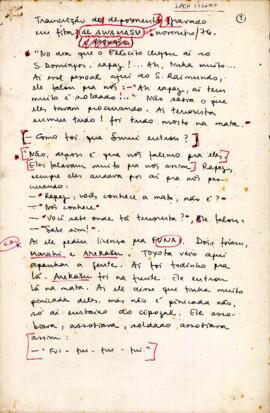 Transcrição do depoimento gravado
em fita de AWAMASU novembro/76.
"No dia que o Exército chegou aí no
S. Domingos, rapaz!... Ah, tinha muito...
Aí esse pessoal aqui do S. Raimundo,
ele falou pra nós: -"Ah rapaz, aí tem
muito é soldado!..." Não sabia o que
eles foram procurando. Aí terrorista
sumiu tudo! foi tudo morto na mata.
- Como foi que Suruí entrou?
Não, depois é que nós falemo pra eles
Eles falavam muito pra nós assim Rapaz,
sempre eles andava por aí pra nós pro-
curando.
-"Rapaz, vocês conhece a mata, não é?
-"Nós conhece"
-"Você sabe onde tá terrorista?", Ele falou.
-"Sabe sim!"
Aí ele pediu licença pra FUNAI. Dois foram,
Marahi e Arekasu. Toyota veio aqui
apanhar a gente. Aí foi todinho pra
lá. Arekasu foi na frente. Ele entrou
lá na mata. Aí ele disse que tinha muito
picada deles, mas não é picada não,
só aí embaixo do cipozal. Ele asso-
biava, assobiava, soldado assobiava
assim:
-"Fui - tui - tui - tui."